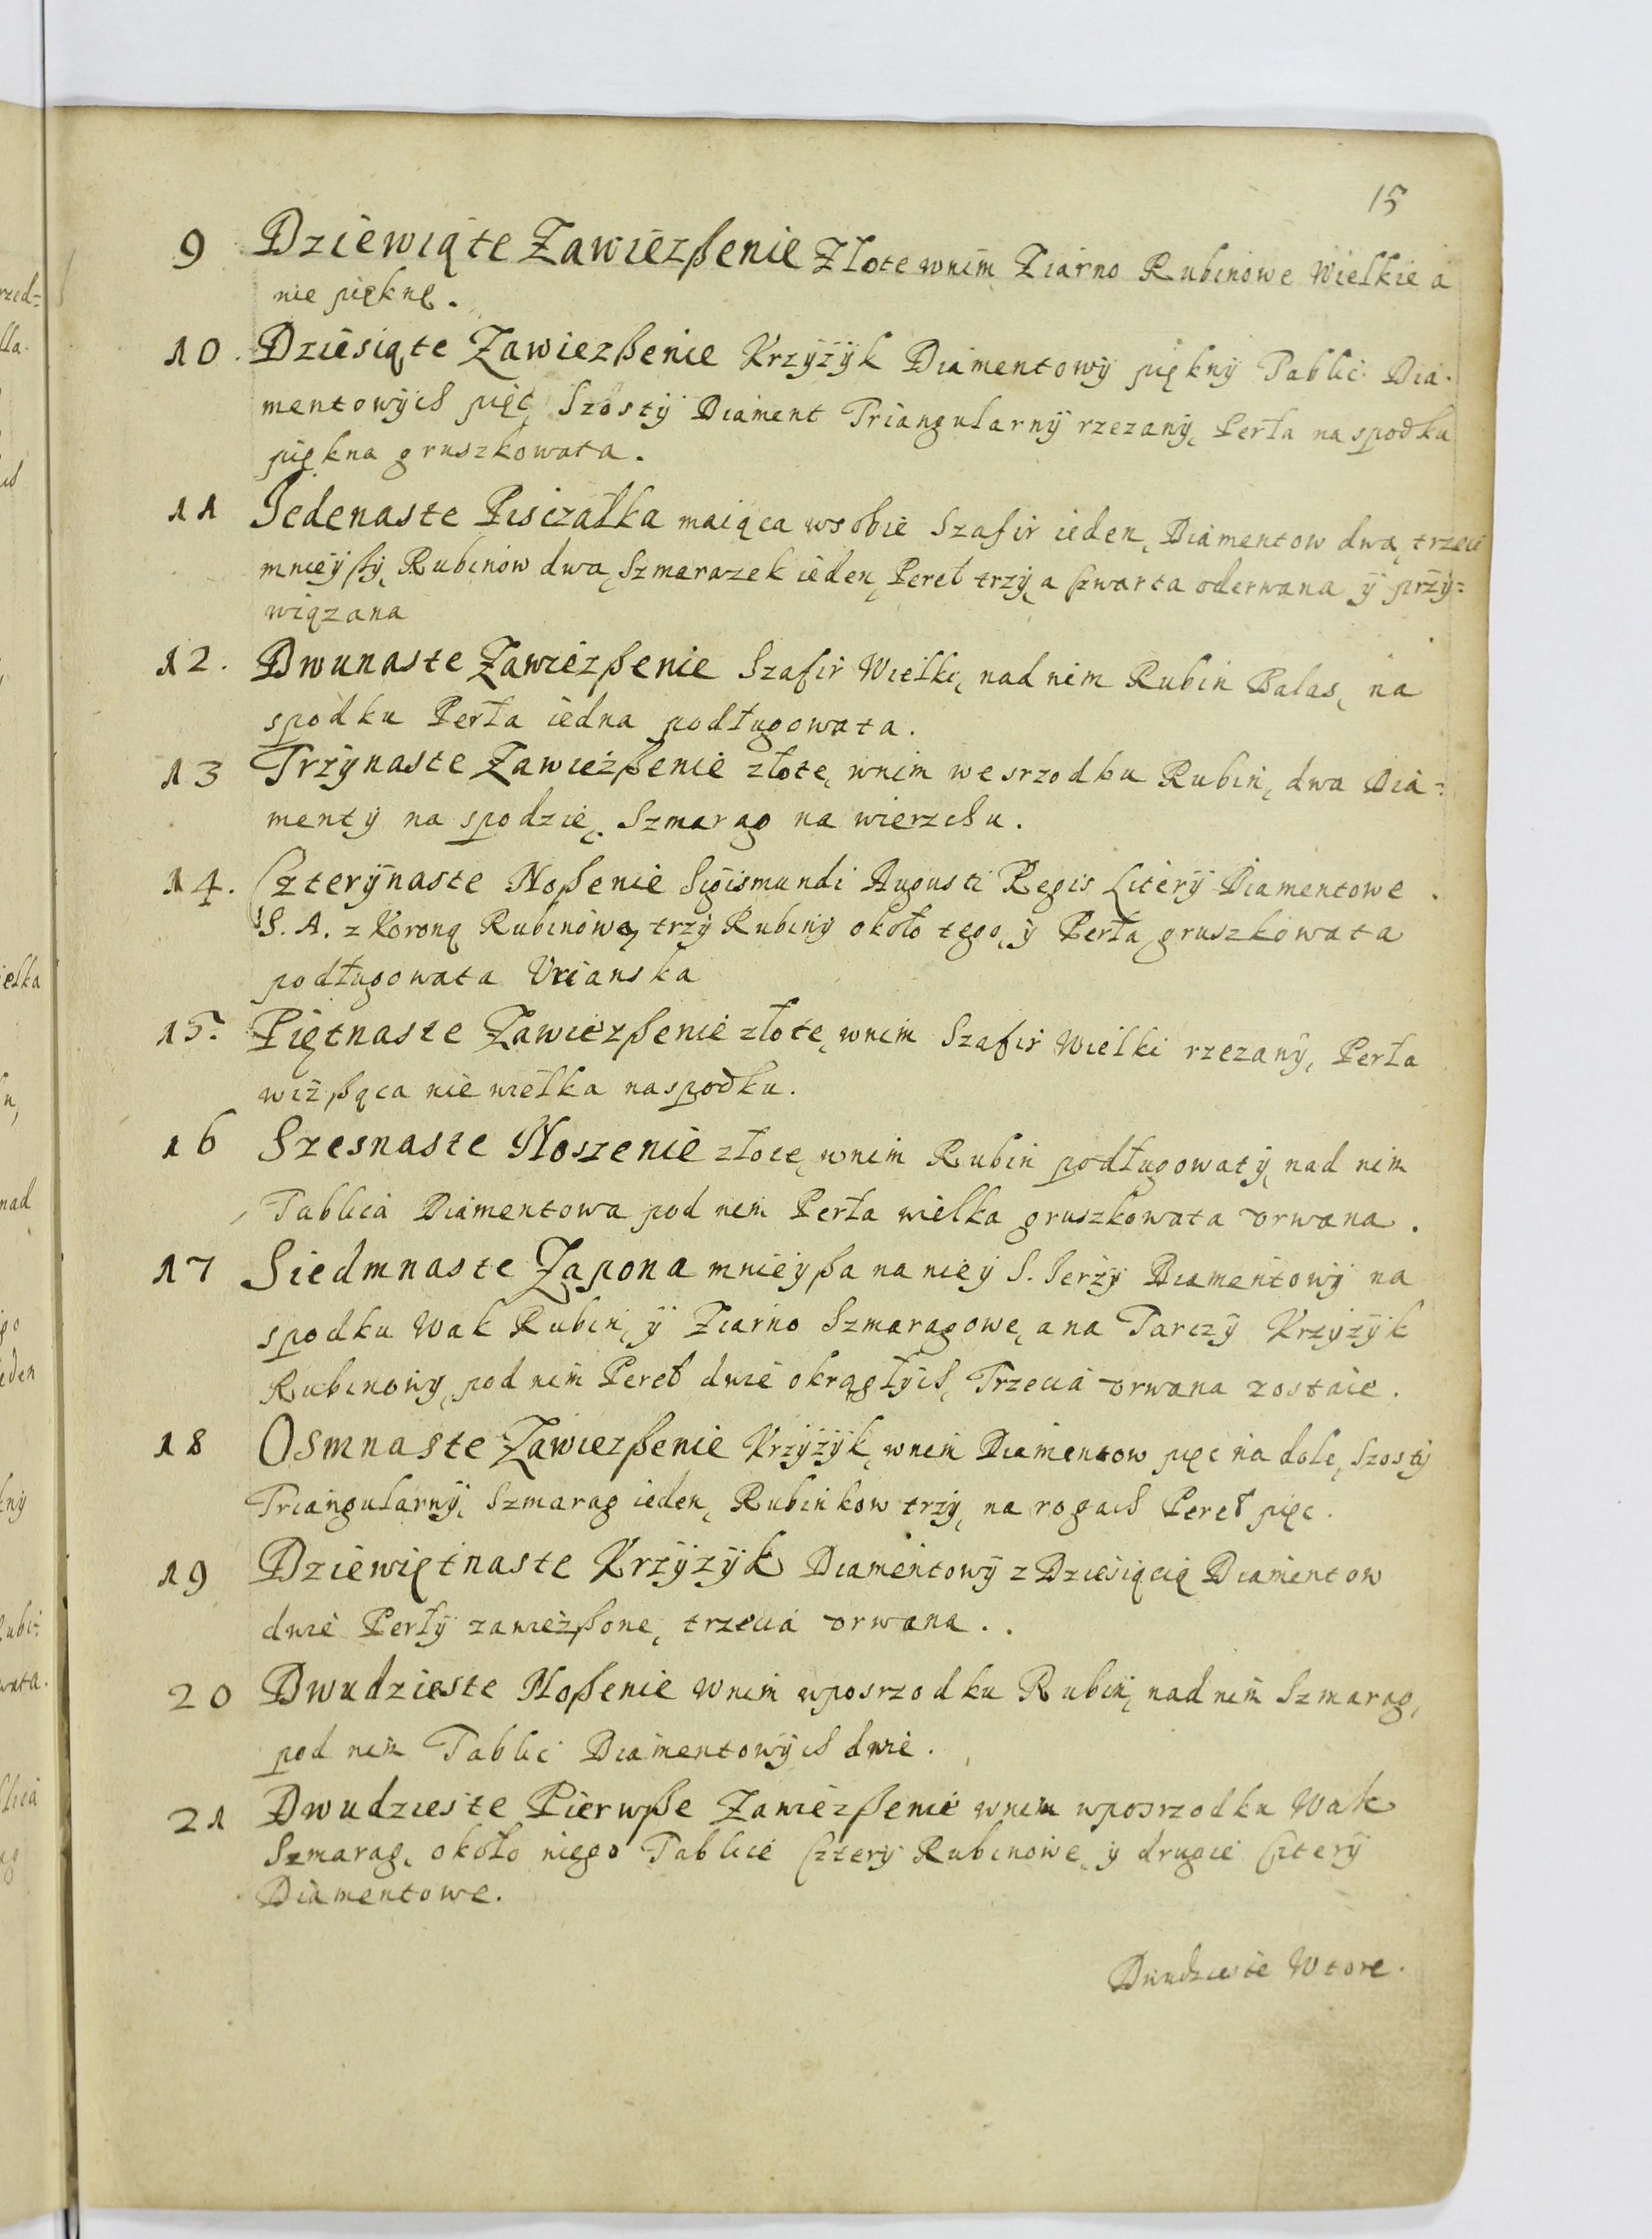 15
9 Dziewiąte Zawiezßenie Złote wnim Ziarno Rubinowe Wielkie a
nie piękne.
10. Dziesiąte Zawiezßenie Krzyżyk Diamentowÿ piękny Tablic Dia-
mentowÿch pięć, Szostÿ Diament Triangularnÿ rzezanÿ, Perła na spodku
piękna gruszkowata.
11 Jedenaste Pisczałka maiąca wsobie Szafir ieden, Diamentow dwa, trzeci
mnieÿßÿ, Rubinow dwa, Szmarazek ieden, Pereł trzÿ, a Czwarta oderwana ÿ przÿ=
wiązana
12. Dwunaste Zawiezßenie Szafir Wielki, nad nim Rubin Balas, na
spodku Perła iedna podługowata.
13 Trzÿnaste Zawieżßenie złote, wnim wesrzodku Rubin, dwa Dia=
mentÿ na spodzie, Szmarag na wierzchu.
14. Czterÿnaste Noßenie Sigismundi Augusti Regis Literÿ Diamentowe
S. A. z Koroną Rubinową, trzÿ Rubinÿ około tego, ÿ Perła gruszkowata
podługowata Urianska
15. Piętnaste Zawiezßenie złote, wnim Szafir Wielki rzezanÿ, Perła
wiżßąca nie wielka na spodku.
16 Szesnaste Noszenie złote, wnim Rubin podługowatÿ, nad nim
Tablica Diamentowa pod nim Perła wielka gruszkowata orwana.
17 Siedmnaste Zapona mnieÿßa na nieÿ S. Jerzÿ Diamentowÿ na
spodku Wak Rubin, ÿ Ziarno Szmaragowe, a na Tarczÿ Krzyżÿk
Rubinowÿ, pod nim Pereł dwie okrągłÿch, Trzecia orwana zostaie.
18 Osmnaste Zawiezßenie Krzÿżÿk, wnim Diamentow pięc na dole, Szostÿ
Triangularnÿ, Szmarag ieden, Rubinkow trzÿ, na rogach Pereł pięc.
19 Dziewiętnaste Krzÿżÿk Diamentowÿ z Dziesiącią Diamentow
dwie Perłÿ zawieżßone, trzecia orwana..
20 Dwudzieste Noßenie wnim wposrzodku Rubin, nad nim Szmarag,
pod nim Tablic Diamentowÿch dwie.
21 Dwudzieste Pierwße Zawiezßenie wnim wposrzodku Wak
Szmarag, około niego Tablice Czterÿ Rubinowe, ÿ drugie Czterÿ
Diamentowe.
Dwudzieste Wtore.